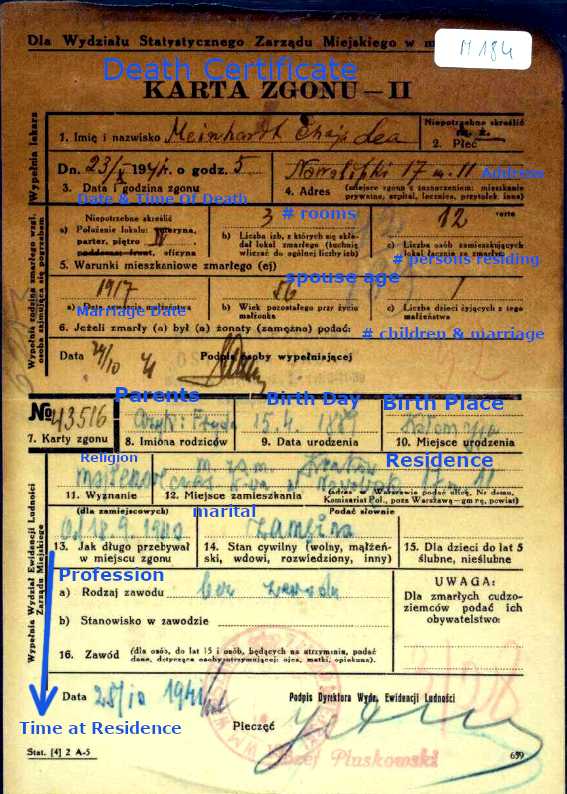 Dla Wydziału Statystycznego Zarządu Miejskiego w m
M 184
Death Certificate
KARTA ZGONU — II
Wypełnia lekarz
Niepotrzebne skreślić
1. Imię i nazwisko Meinhardt Chaja Lea
2. Płeć
Dn. 23/X 1941 r. o godz. 5
Nowolipki 17 m. 11 Address
3. Data i godzina zgonu
4. Adres (miejsce zgonu z zaznaczeniem: mieszkanie prywatne, szpital, lecznica, przytułek, inne)
Date & Time Of Death
# rooms
Wypełnia rodzina zmarłego wzgl. osoba zajmująca się pogrzebem
Niepotrzebne skreślić
3
12
verte
a) Położenie lokalu: suteryna, parter, piętro IV
poddasze: front, oficyna
b) Liczba izb, z których się składał lokal zmarłego (kuchnię wliczać do ogólnej liczby izb)
c) Liczba osób zamieszkujących lokal łącznie ze zmarłym
# persons residing
5. Warunki mieszkaniowe zmarłego (ej)
spouse age
1917
56
1
a) Data zawarcia małżeństwa
Marriage Date
b) Wiek pozostałego przy życiu małżonka
c) Liczba dzieci żyjących z tego małżeństwa
6. Jeżeli zmarły (a) był (a) żonaty (zamężna) podać:
# children & marriage
Data 24/10 41
Podpis osoby wypełniającej
Parents
Birth Day
Birth Place
№ 43516
15.4. 1889
7. Karty zgonu
8. Imiona rodziców
9. Data urodzenia
10. Miejsce urodzenia
Religion
Residence
Wypełnia Wydział Ewidencji Ludności Zarządu Miejskiego
Kraków
17 m 11
11. Wyznanie
12. Miejsce zamieszkania
(adres w Warszawie podać ulicę, Nr domu, Komisariat Pol., poza Warszawą—gminę, powiat)
marital
(dla zamiejscowych)
Podać słownie
Od 18.9.1940
zamężna
13. Jak długo przebywał w miejscu zgonu
14. Stan cywilny (wolny, małżeński, wdowi, rozwiedziony, inny)
15. Dla dzieci do lat 5 ślubne, nieślubne
Profession
a) Rodzaj zawodu bez zawodu
UWAGA:
Dla zmarłych cudzoziemców podać ich obywatelstwo:
b) Stanowisko w zawodzie
16. Zawód (dla osób, do lat 15 i osób, będących na utrzymaniu, podać dane, dotyczące osoby utrzymującej: ojca, matki, opiekuna).
Data 25/10 1941
Podpis Dyrektora Wydz. Ewidencji Ludności
Time at Residence
Pieczęć
Józef Piuskowski
Stat. [4] 2 A-5
659